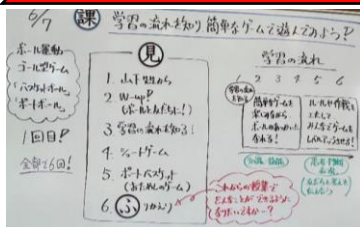 6/7
課 学習の流れを知り簡単なゲームで遊んでみよう!
ボール運動
ゴール型ゲーム
「バスケットボール」
「ポートボール」
1回目!
全部で6回!
見
1. 山下先生から
2. W-up!
(ボールとお友だちに!)
3. 学習の流れを知る!
4. シュートゲーム
5. ポートバスケット
(おためしのゲーム)
6. ふりかえり
学習の流れ
1 2 3 4 5 6
簡単なゲームを
楽しみながら
ボールの
なれる!
ルールや作戦を
工夫して
みんなでゲームを
レベルアップさせる!
これからの授業で
どんなことができるように
なりたいですか…?